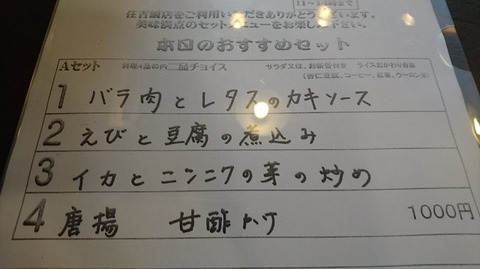 11~14時まで
住吉飯店をご利用いただきありがとうございます。
美味満点のセットメニューをお楽しみ下さい。
本日のおすすめセット
Aセット 料理4品の内二品チョイス サラダ又は、お新香付き ライスおかわり自由
(杏仁豆腐、コーヒー、紅茶、ウーロン茶)
1 バラ肉とレタスのカキソース
2 えびと豆腐の煮込み
3 イカとニンニクの芽の炒め
4 唐揚 甘酢かけ 1000円